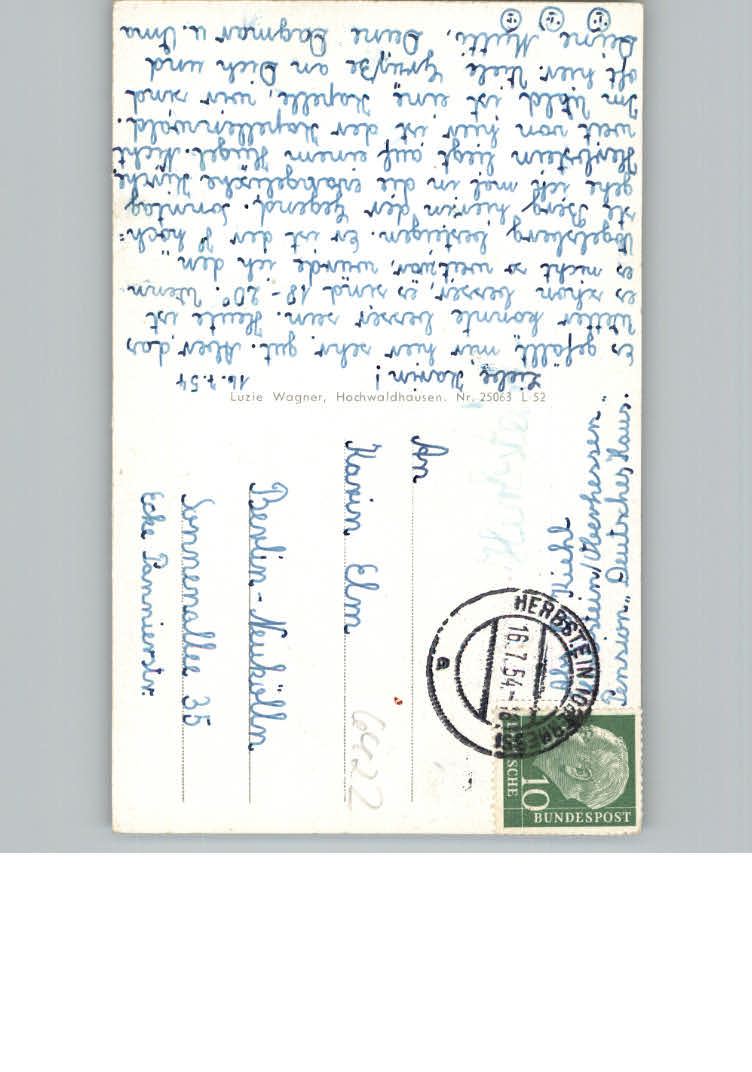 16.7.54
Liebe Karin!
Es gefällt mir hier sehr gut. Aber das
Wetter könnte besser sein. Heute ist
es schon besser, es sind 18-20°. Wenn
es nicht so weit wär, würde ich den
Vogelsberg besteigen. Er ist der höch=
ste Berg hier in der Gegend. Sonntag
gehe ich mal in die evangelische Kirche
Herbstein liegt auf einem Hügel. Nicht
weit von hier ist der Kapellenwald.
Im Wald ist eine Kapelle, wir sind
oft hier. Viele Grüße an Dich und
Deine Mutti, Deine Dagmar u. Oma
Luzie Wagner, Hochwaldhausen. Nr. 25063 L 52
An
Karin Elm
Berlin-Neukölln
Sonnenallee 35
Ecke Pannierstr.
Kiehl
stein/Oberhessen"
Pension "Deutsches Haus.
HERBSTEIN
16.7.54-18
a
10
DEUTSCHE
BUNDESPOST